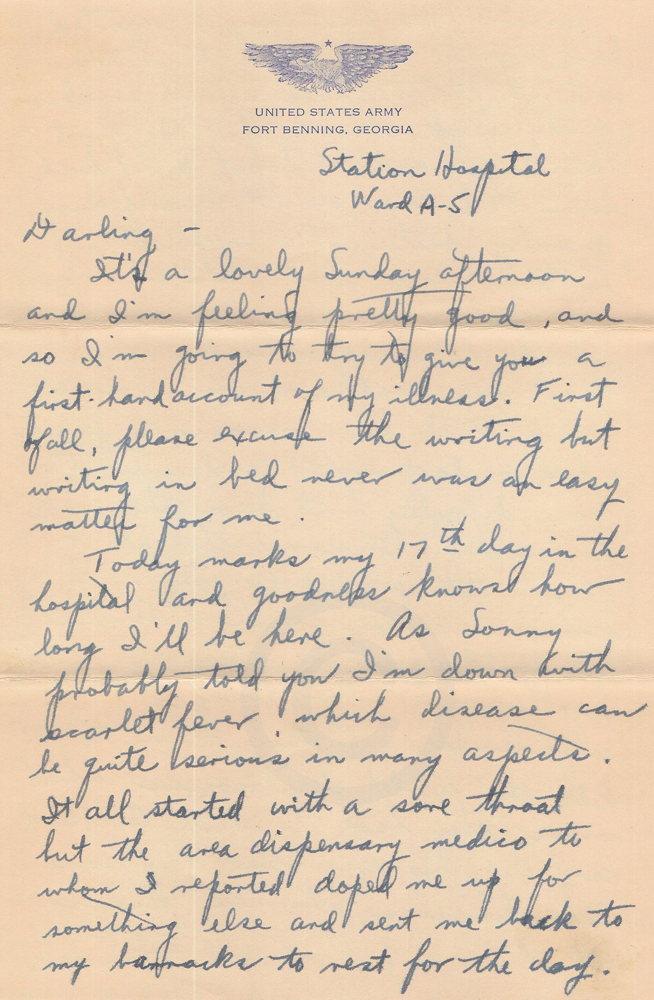 UNITED STATES ARMY
FORT BENNING, GEORGIA
Station Hospital
Ward A-5
Darling -
It's a lovely Sunday afternoon
and I'm feeling pretty good, and
so I'm going to try to give you a
first-hand account of my illness. First
of all, please excuse the writing but
writing in bed never was an easy
matter for me.
Today marks my 17th day in the
hospital and goodness knows how
long I'll be here. As Sonny
probably told you I'm down with
scarlet fever which disease can
be quite serious in many aspects.
It all started with a sore throat
but the area dispensary medico to
whom I reported doped me up for
something else and sent me back to
my barracks to rest for the day.